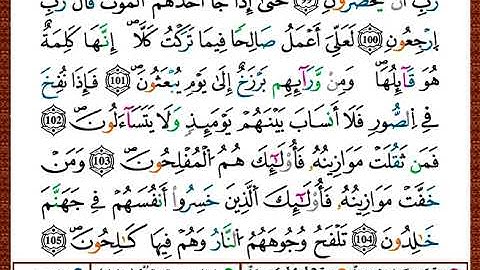 رَبِّ اَنۡ يَّحۡضُرُوۡنِ ﴿99﴾ حَتّٰٓى اِذَا جَآءَ اَحَدَهُمُ الۡمَوۡتُ قَالَ رَبِّ
ارۡجِعُوۡنِ ﴿100﴾ لَعَلِّىۡۤ اَعۡمَلُ صَالِحًـا فِيۡمَا تَرَكۡتُ كَلَّا ؕ اِنَّهَا كَلِمَةٌ
هُوَ قَآٮِٕلُهَا ؕ وَمِنۡ وَّرَآٮِٕهِمۡ بَرۡزَخٌ اِلٰى يَوۡمِ يُبۡعَثُوۡنَ ﴿101﴾ فَاِذَا نُفِخَ
فِى الصُّوۡرِ فَلَاۤ اَنۡسَابَ بَيۡنَهُمۡ يَوۡمَٮِٕذٍ وَّلَا يَتَسَآءَلُوۡنَ ﴿102﴾
فَمَنۡ ثَقُلَتۡ مَوَازِيۡنُهٗ فَاُولٰٓٮِٕكَ هُمُ الۡمُفۡلِحُوۡنَ ﴿103﴾ وَمَنۡ
خَفَّتۡ مَوَازِيۡنُهٗ فَاُولٰٓٮِٕكَ الَّذِيۡنَ خَسِرُوۡۤا اَنۡفُسَهُمۡ فِىۡ جَهَـنَّمَ
خٰلِدُوۡنَ ﴿104﴾ تَلۡفَحُ وُجُوۡهَهُمُ النَّارُ وَهُمۡ فِيۡهَا كٰلِحُوۡنَ ﴿105﴾